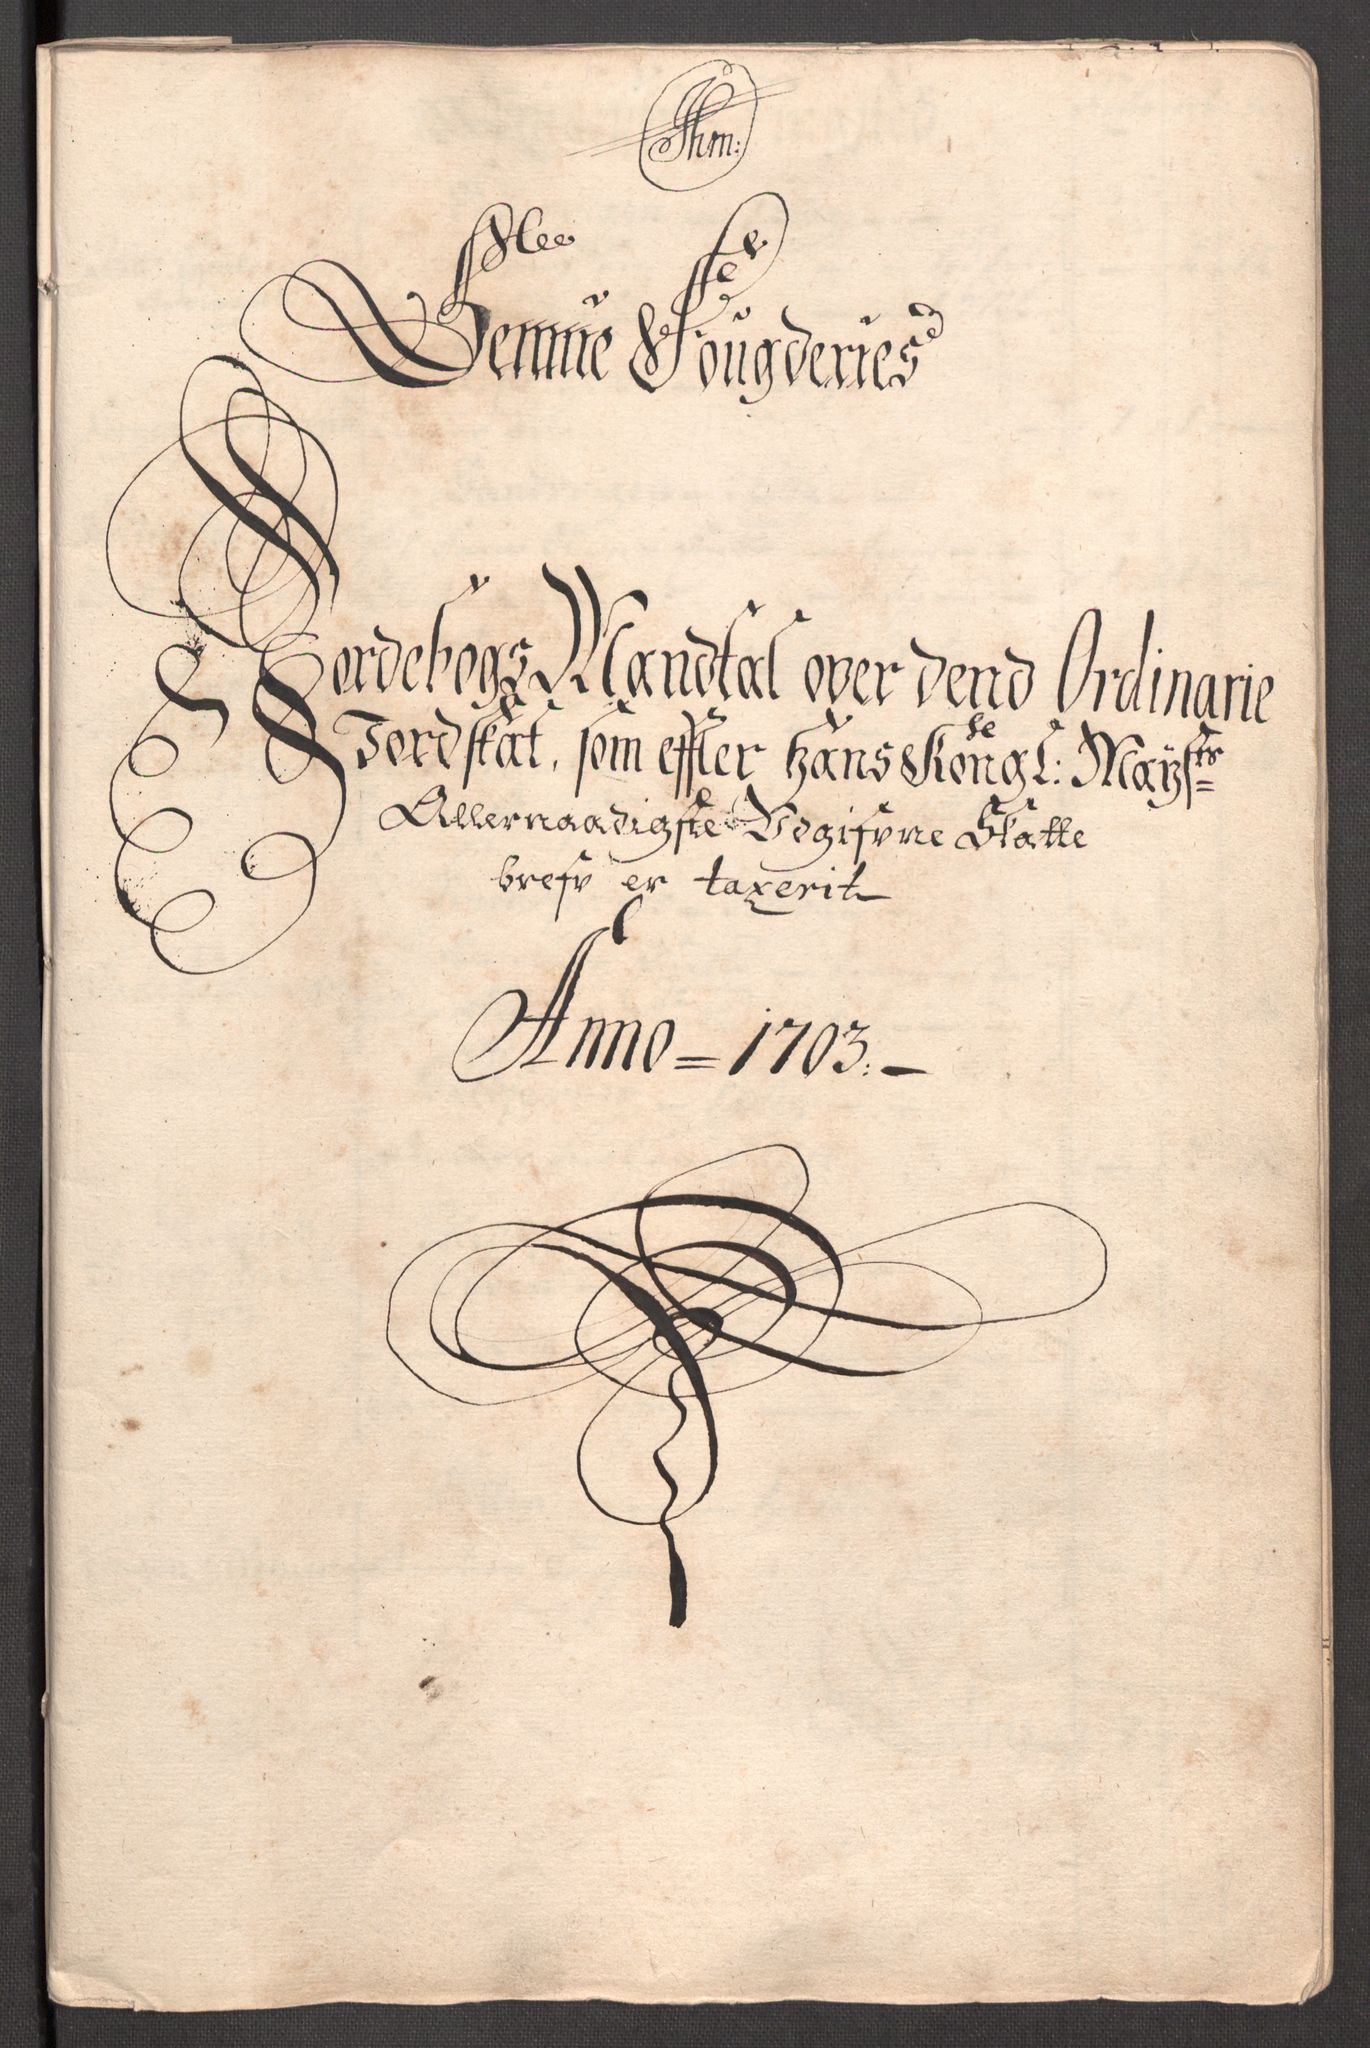 Thm:
Senniе Fougderies
Jordebogs Mandtal over dend Ordinarie
Jordskat, som effter Hans Kongl: Maysts
Allernaadigste Udgifvne Skatte
brefv er taxerit
Anno = 1703.